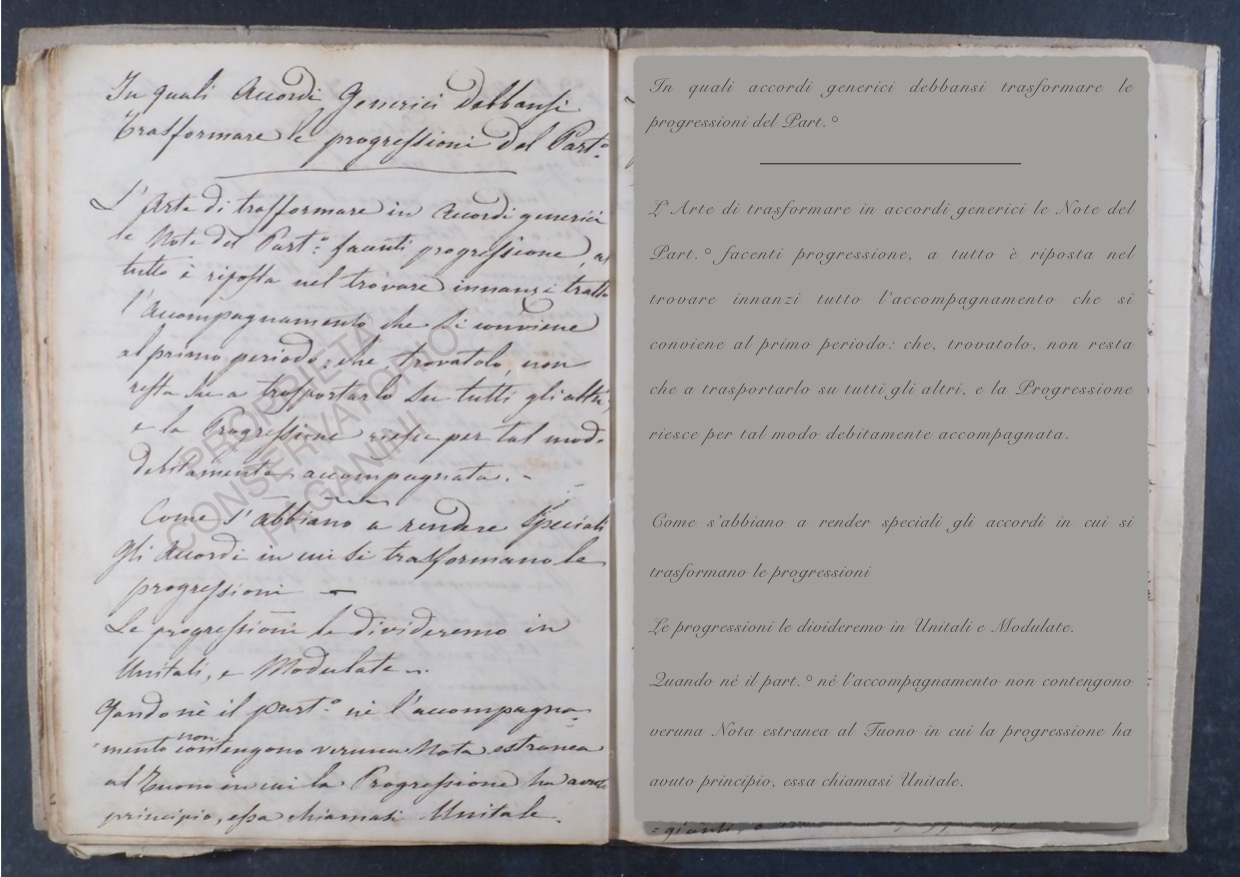 In quali Accordi Generici debbansi
trasformare le progressioni del Part.º
L'Arte di trasformare in Accordi generici
le Note del Part.º facenti progressione, a
tutto è riposta nel trovare innanzi tutto
l'Accompagnamento che si conviene
al primo periodo: che trovatolo, non
resta che a trasportarlo su tutti gli altri,
e la Progressione riesce per tal modo
debitamente accompagnata. -
Come s'abbiano a rendere speciali
gli Accordi in cui si trasformano le
progressioni -
Le progressioni le divideremo in
Unitali, e Modulate -
Quando nè il part.º nè l'accompagna=
mento non contengono veruna Nota estranea
al Tuono in cui la Progressione ha avuto
principio, essa chiamasi Unitale.
PROPRIETÀ
CONSERVATORIO
PAGANINI
In quali accordi generici debbansi trasformare le
progressioni del Part.°
L'Arte di trasformare in accordi generici le Note del
Part.° facenti progressione, a tutto è riposta nel
trovare innanzi tutto l'accompagnamento che si
conviene al primo periodo: che, trovatolo, non resta
che a trasportarlo su tutti gli altri, e la Progressione
riesce per tal modo debitamente accompagnata.
Come s'abbiano a render speciali gli accordi in cui si
trasformano le progressioni
Le progressioni le divideremo in Unitali e Modulate.
Quando né il part.° né l'accompagnamento non contengono
veruna Nota estranea al Tuono in cui la progressione ha
avuto principio, essa chiamasi Unitale.